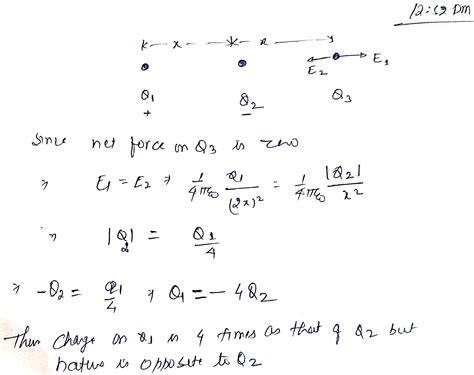 12:52 pm
x x
E2 E1
Q1 Q2 Q3
+ −
Since net force on Q3 is zero
⇒ E1 = E2 ⇒ 1/4πε0 Q1/(2x)² = 1/4πε0 |Q2|/x²
⇒ |Q2| = Q1/4
⇒ -Q2 = Q1/4 ⇒ Q1 = - 4Q2
Then charge on Q1 is 4 times as that of Q2 but
nature is opposite to Q2